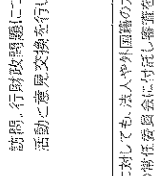 訪問、行財政問題につ
活動と意見交換を行い
に対しても、法人や外国籍の
の常任委員会に付託し審議を